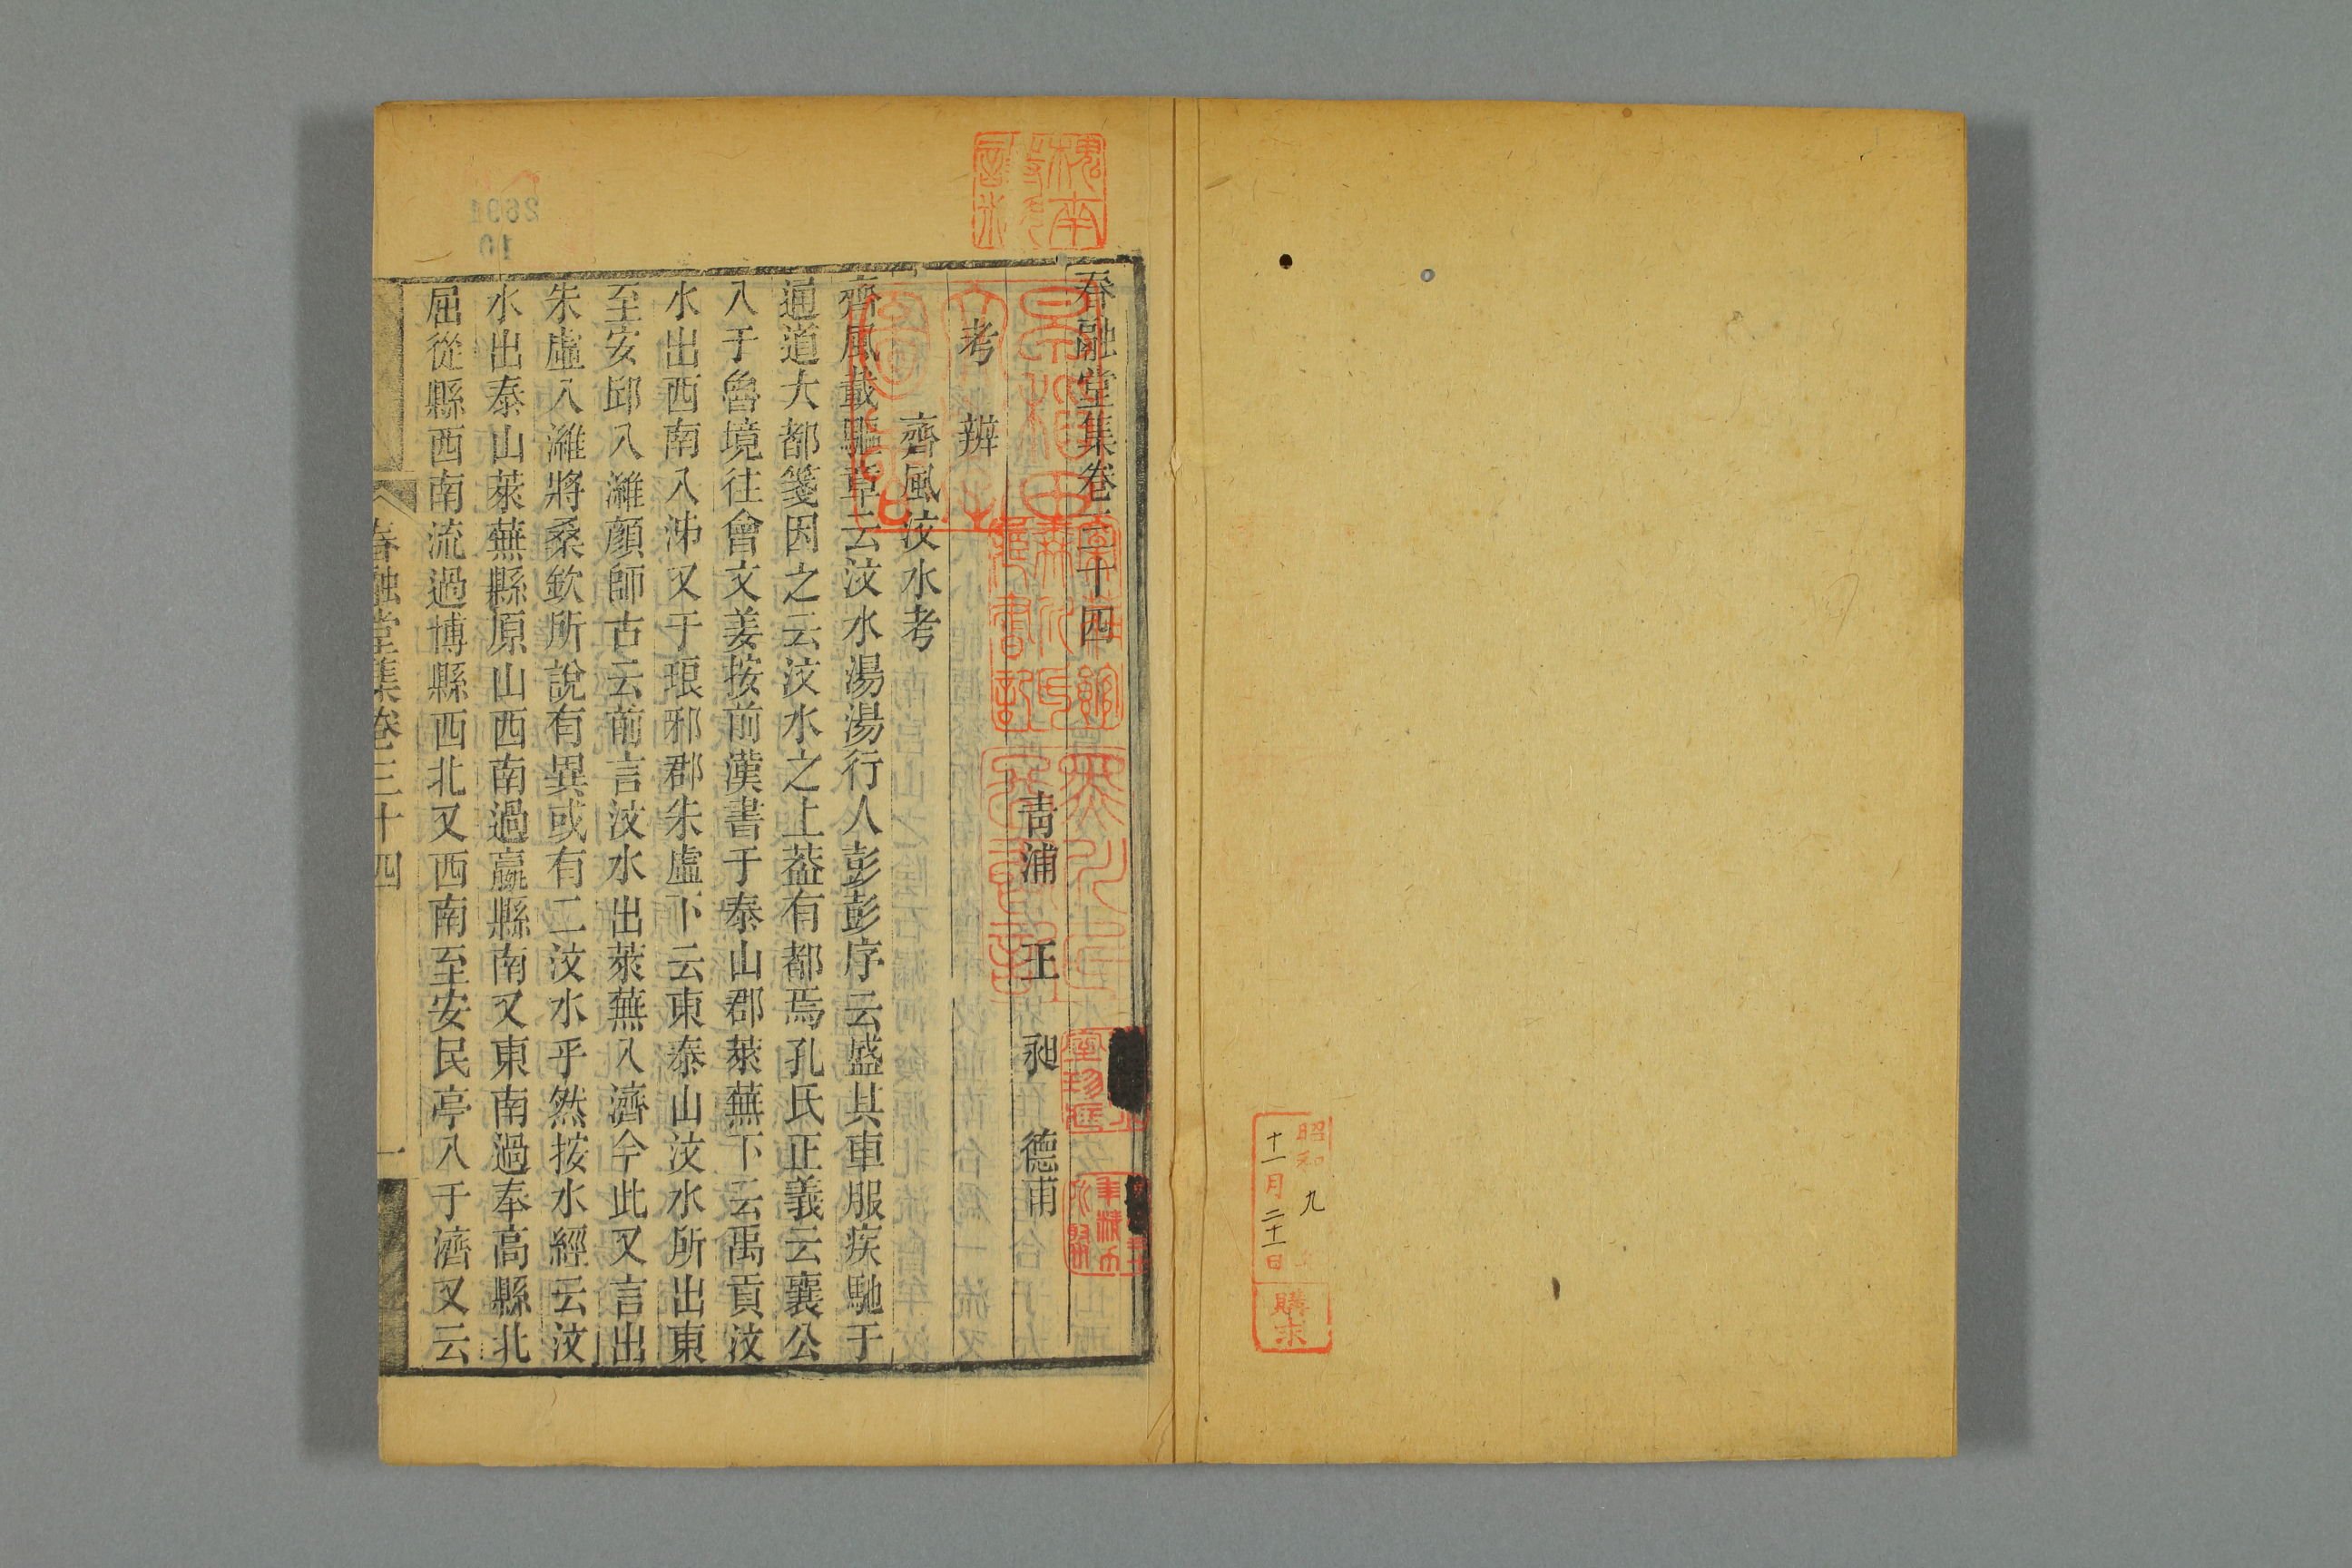 昭和九
十一月二十一日
購求
春融堂集卷三十四
青浦 王 昶 德甫
考 辨
齊風汶水考
齊風載驅章云汶水湯湯行人彭彭序云盛其車服疾馳于
通道大都箋因之云汶水之上葢有都焉孔氏正義云襄公
入于魯境往會文姜按前漢書于泰山郡萊蕪下云禹貢汶
水出西南入泲又于琅邪郡朱虛下云東泰山汶水所出東
至安邱入濰顏師古云前言汶水出萊蕪入濟今此又言出
朱虛入濰將桑欽所說有異或有二汶水乎然按水經云汶
水出泰山萊蕪縣原山西南過嬴縣南又東南過奉高縣北
屈從縣西南流過博縣西北又西南至安民亭入于濟又云
春融堂集卷三十四 一